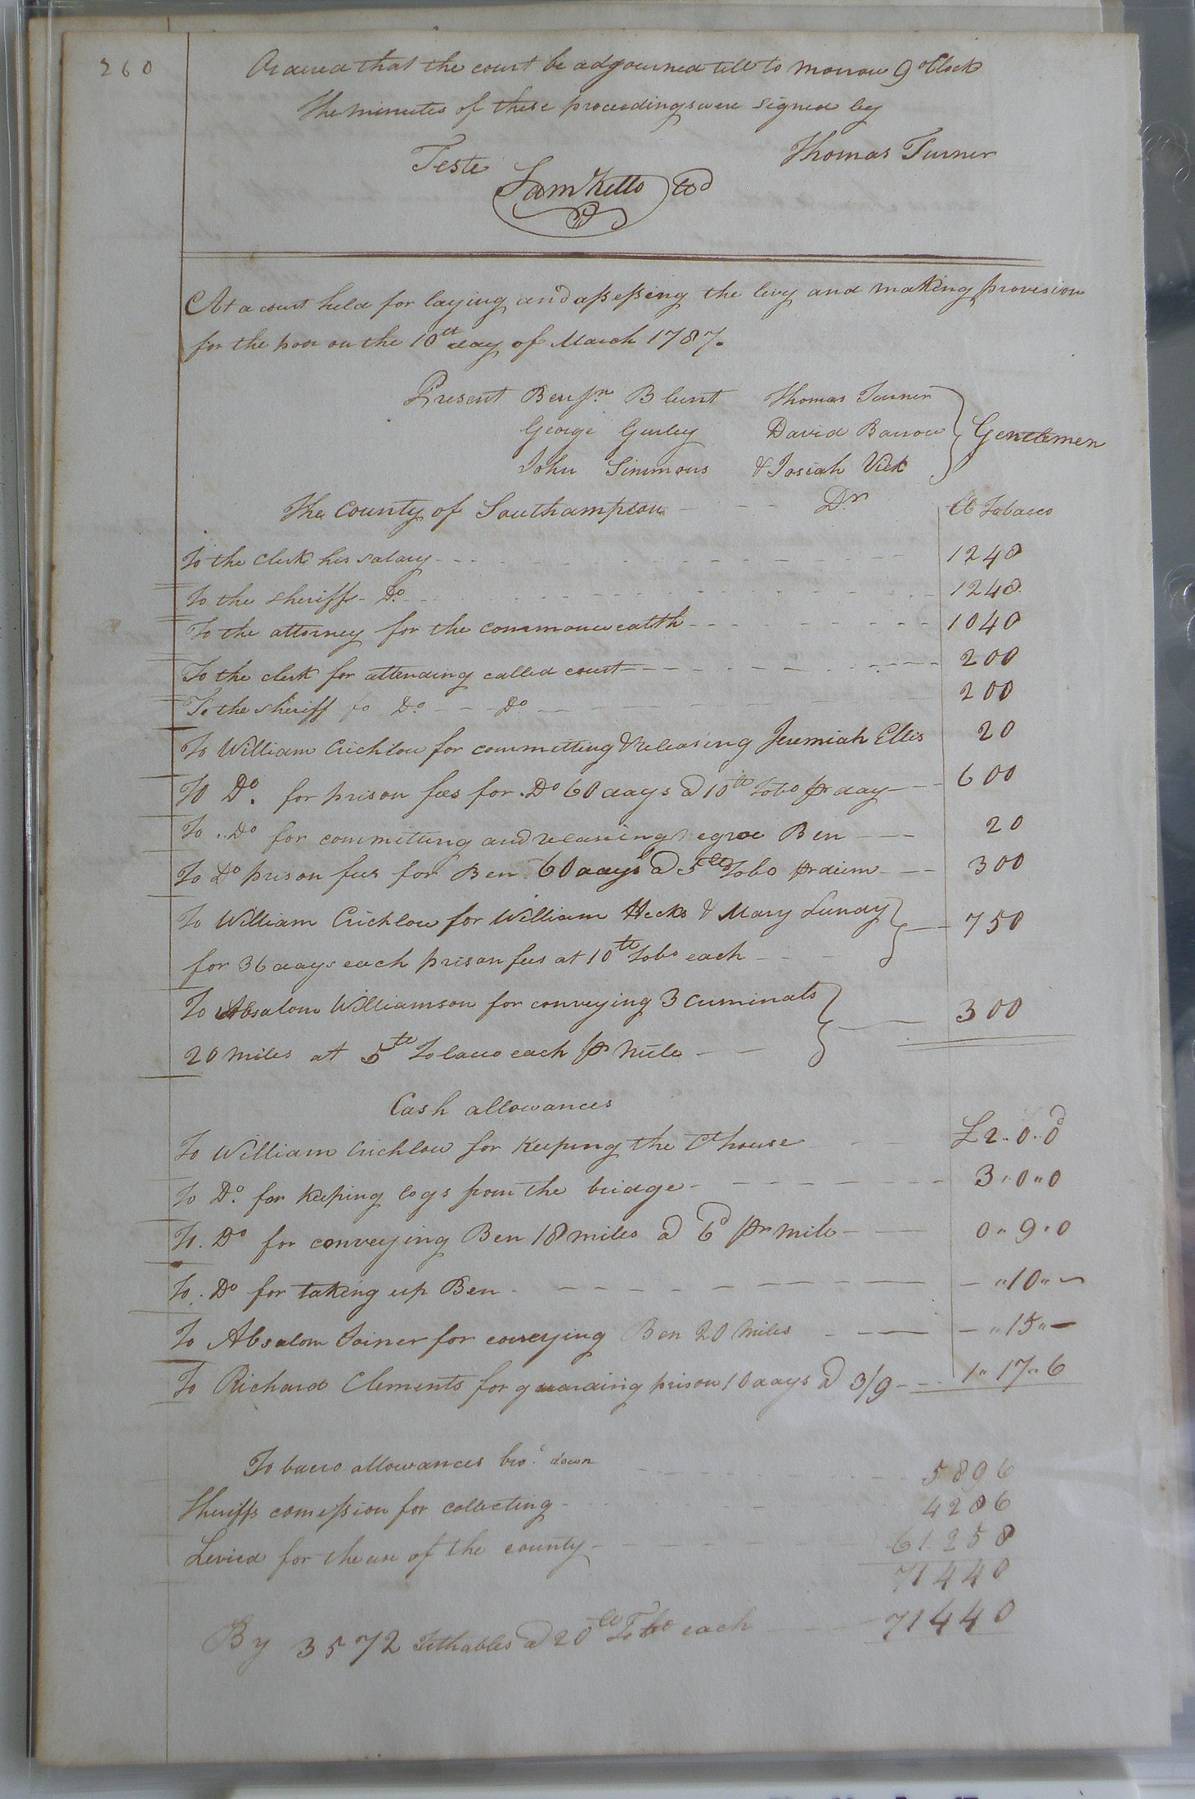 260
Ordered that the court be adjourned till to morrow 9 oClock
The minutes of these proceedings were signed by
Thomas Turner
Teste
Sam Kello
At a court held for laying and assessing the levy and making provision
for the poor on the 10th day of March 1787.
Present Benjn Blunt Thomas Turner
George Gurley David Barrow Gentlemen
John Simmons & Josiah Vick
The County of Southampton Dr lb Tobacco
To the Clerk his salary 1240
To the sheriffs Do 1240
To the attorney for the commonwealth 1040
To the clerk for attending called court 200
To the Sheriff fo Do Do 200
To William Crichlow for committing & releasing Jeremiah Ellis 20
To Do. for prison fees for Do 60 days @ 10lb Tobo pr day 600
To Do for committing and releasing negroe Ben 20
To Do prison fees for Ben 60 days @ 5lb Tobo pr diem 300
To William Crichlow for William Hecks & Mary Lundy 750
for 36 days each prison fees at 10lb Tobo each
To Absalom Williamson for conveying 3 criminals 300
20 miles at 5lb Tobacco each pr mile
Cash allowances
To William Crichlow for keeping the Ct house £2..0..0d
To Do. for keeping logs from the bridge 3..0..0
To. Do for conveying Ben 18 miles @ 6d pr mile 0..9..0
To. Do for taking up Ben - ..10.. -
To Absalom Joiner for conveying Ben 20 miles - ..15.. -
To Richard Clements for guarding prison 10 days @ 3/9 1..17..6
Tobacco allowances bro. down 5896
Sheriffs comession for collecting 4286
Levied for the use of the county 61258
71440
By 3572 Tithables @ 20lb Tobo each 71440